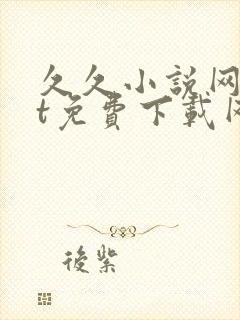 久久小說网
t免費下載网
後紫